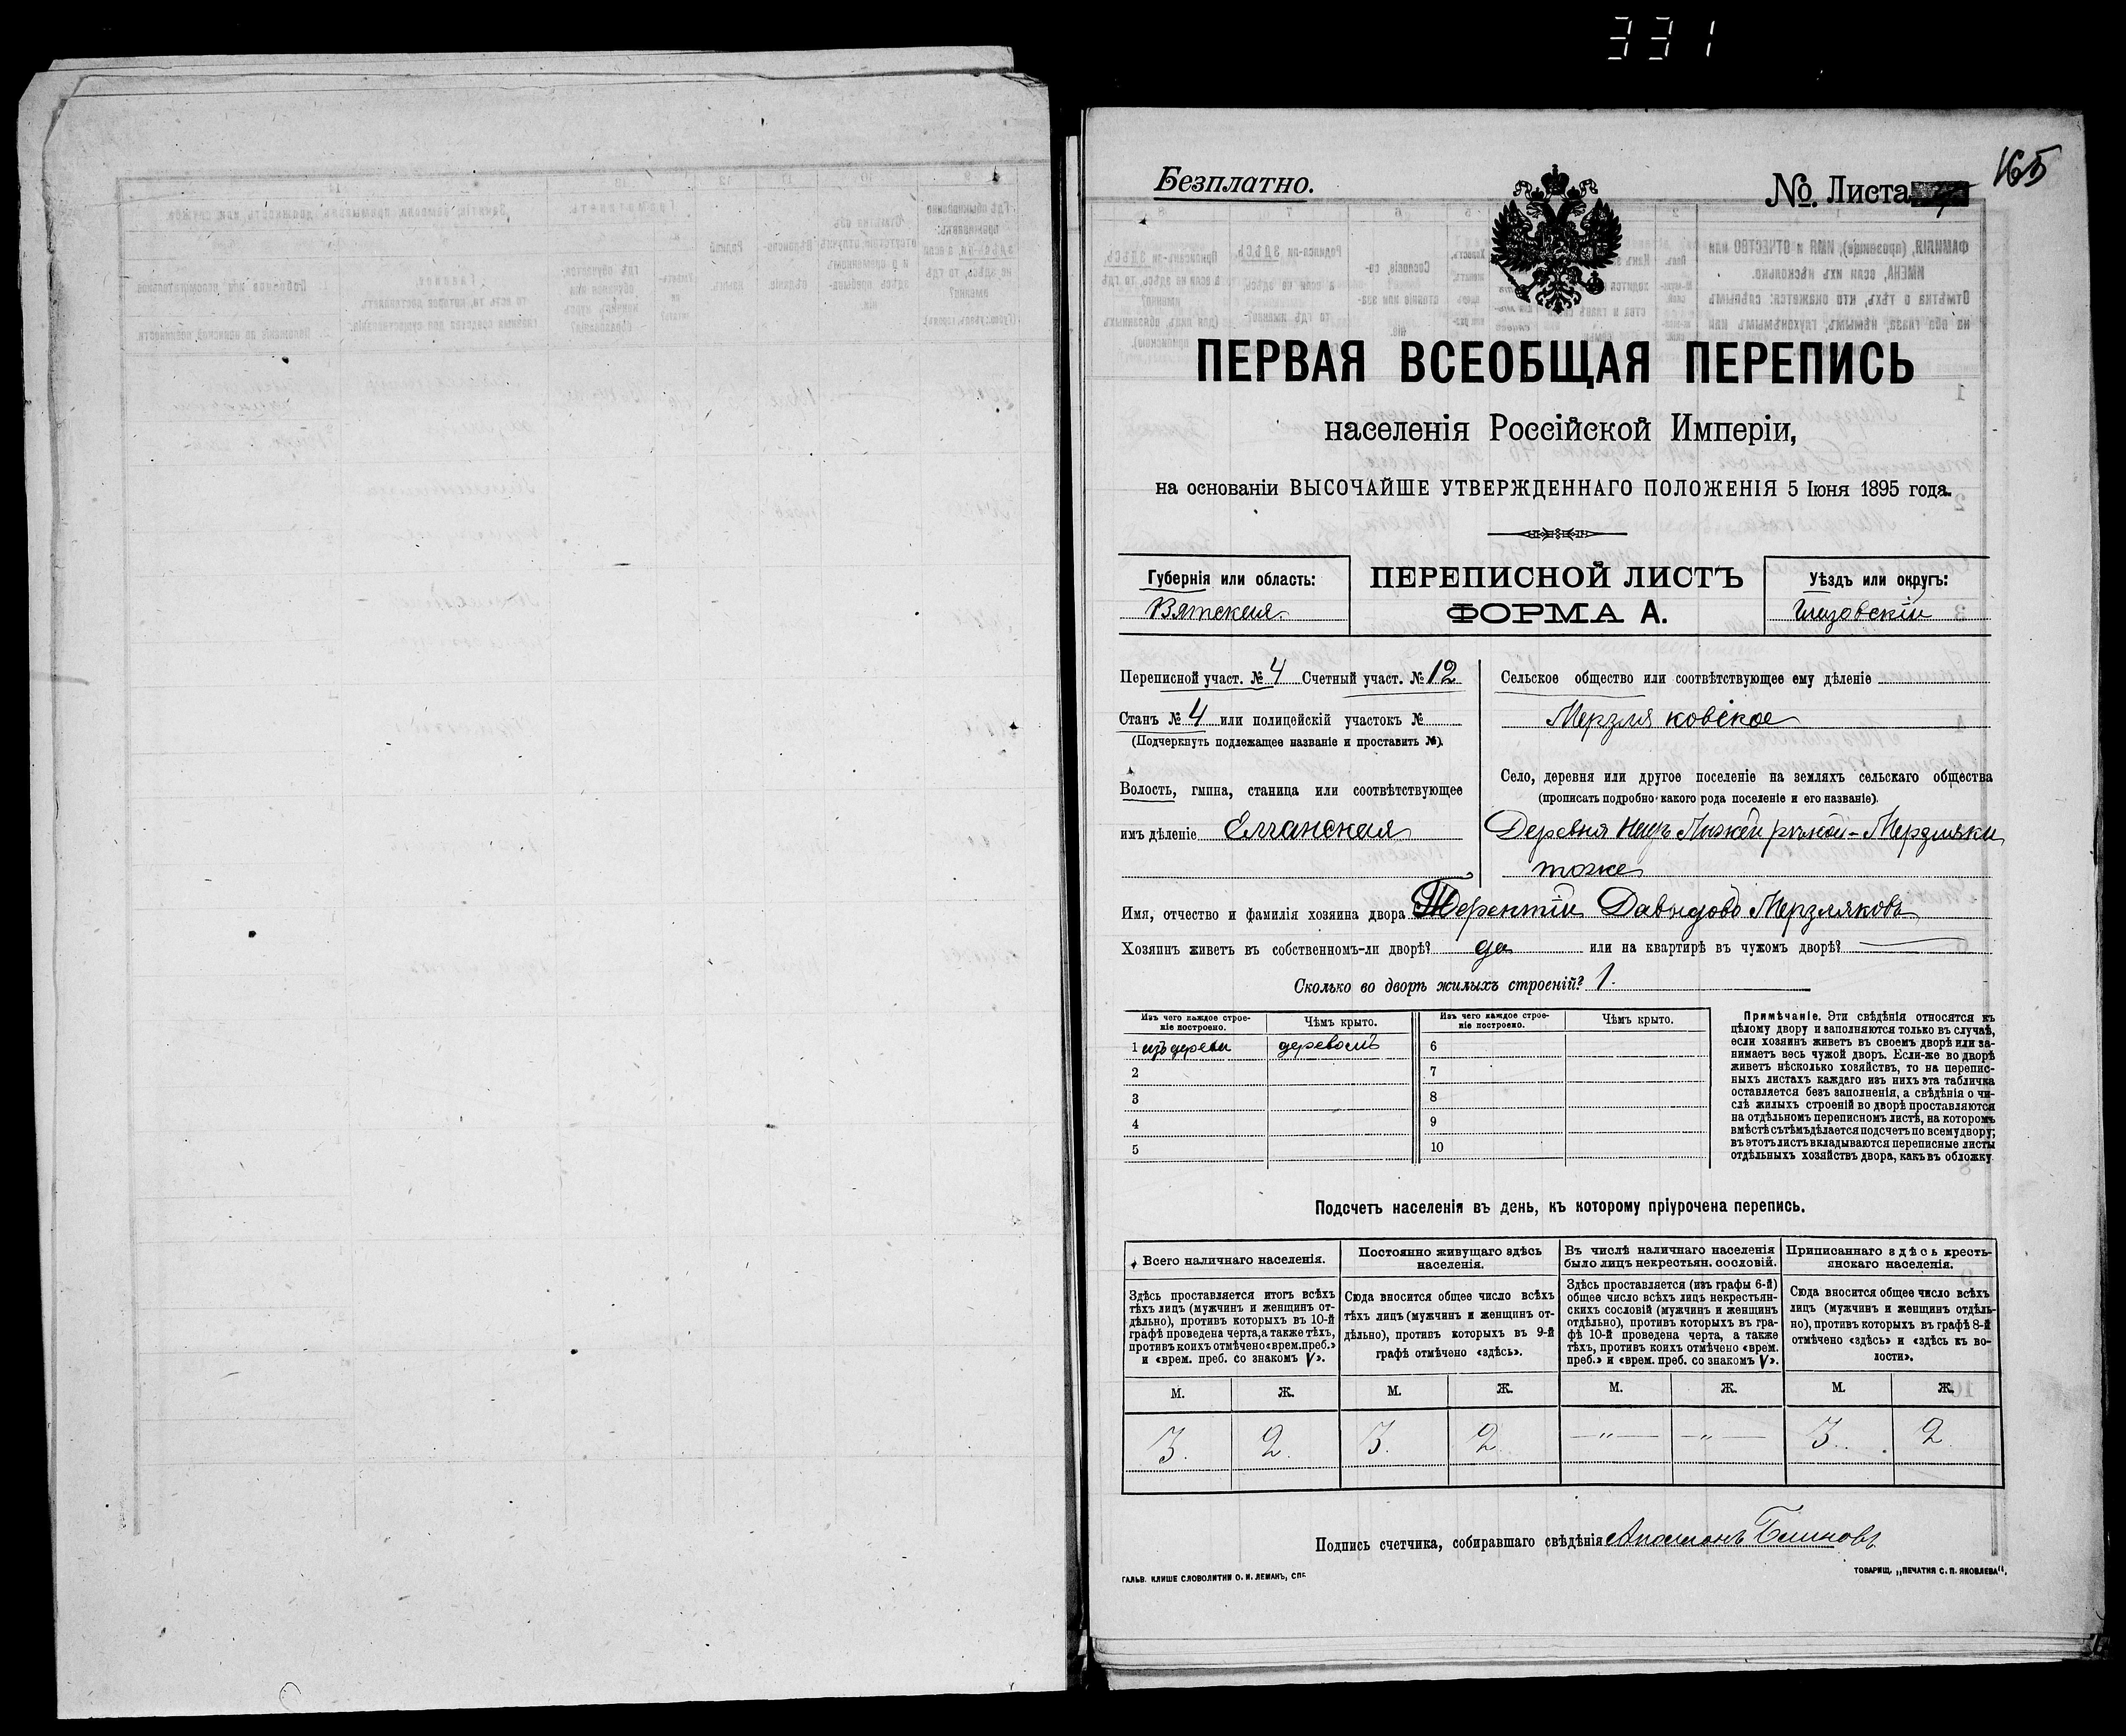 331
165
Безплатно.
№. Листа
ПЕРВАЯ ВСЕОБЩАЯ ПЕРЕПИСЬ
населенія Россійской Имперіи,
на основаніи ВЫСОЧАЙШЕ УТВЕРЖДЕННАГО ПОЛОЖЕНІЯ 5 Іюня 1895 года.
Губернія или область:
Вятская
ПЕРЕПИСНОЙ ЛИСТЪ
ФОРМА А.
Уѣздъ или округъ:
Глазовскій
Переписной участ. № 4 Счетный участ. № 12
Станъ № 4 или полицейскій участокъ №
(Подчеркнуть подлежащее названіе и проставить №).
Волость, гмина, станица или соотвѣтствующее
имъ дѣленіе Елганская
Сельское общество или соотвѣтствующее ему дѣленіе
Мерзляковское
Село, деревня или другое поселеніе на земляхъ сельскаго общества
(прописать подробно какого рода поселеніе и его названіе).
Деревня Надъ рѣкой - Мерзляки
тоже
Имя, отчество и фамилія хозяина двора Терентій Давыдовъ Мерзляковъ
Хозяинъ живетъ въ собственномъ-ли дворѣ? да или на квартирѣ въ чужомъ дворѣ?
Сколько во дворѣ жилыхъ строеній? 1.
Изъ чего каждое строе-
ніе построено.
Чѣмъ крыто.
Изъ чего каждое строе-
ніе построено.
Чѣмъ крыто.
1 изъ дерева деревомъ 6
2 7
3 8
4 9
5 10
Примѣчаніе. Эти свѣдѣнія относятся къ
цѣлому двору и заполняются только въ случаѣ,
если хозяинъ живетъ въ своемъ дворѣ или за-
нимаетъ весь чужой дворъ. Если-же во дворѣ
живетъ нѣсколько хозяйствъ, то на перепис-
ныхъ листахъ каждаго изъ нихъ эта табличка
оставляется безъ заполненія, а свѣдѣнія о чи-
слѣ жилыхъ строеній во дворѣ проставляются
на отдѣльномъ переписномъ листѣ, на которомъ
вмѣстѣ съ тѣмъ дѣлается подсчетъ по всему двору;
въ этотъ листъ вкладываются переписные листы
отдѣльныхъ хозяйствъ двора, какъ въ обложку.
Подсчетъ населенія въ день, къ которому пріурочена перепись.
Всего наличнаго населенія.
Здѣсь проставляется итогъ всѣхъ
тѣхъ лицъ (мужчинъ и женщинъ от-
дѣльно), противъ которыхъ въ 10-й
графѣ проведена черта, а также тѣхъ,
противъ коихъ отмѣчено «врем. преб.»
и «врем. преб. со знакомъ V».
Постоянно живущаго здѣсь
населенія.
Сюда вносится общее число всѣхъ
тѣхъ лицъ (мужчинъ и женщинъ от-
дѣльно), противъ которыхъ въ 9-й
графѣ отмѣчено «здѣсь».
Въ числѣ наличнаго населенія
было лицъ некрестьян. сословій.
Здѣсь проставляется (изъ графы 6-й)
общее число всѣхъ лицъ некрестьян-
скихъ сословій (мужчинъ и женщинъ
отдѣльно), противъ которыхъ въ гра-
фѣ 10-й проведена черта, а также
тѣхъ, противъ коихъ отмѣчено «врем.
преб.» и «врем. преб. со знакомъ V».
Приписаннаго здѣсь кресть-
янскаго населенія.
Сюда вносится общее число всѣхъ
лицъ (мужчинъ и женщинъ отдѣль-
но), противъ которыхъ въ графѣ 8-й
отмѣчено «здѣсь» и «здѣсь къ во-
лости».
М. Ж. М. Ж. М. Ж. М. Ж.
3. 2. 3. 2 —"— —"— 3. 2.
Подпись счетчика, собиравшаго свѣдѣнія
ГАЛЬВ. КЛИШЕ СЛОВОЛИТНИ О. И. ЛЕМАНЪ, СПБ.
ТОВАРИЩ. „ПЕЧАТНЯ С. П. ЯКОВЛЕВА“.